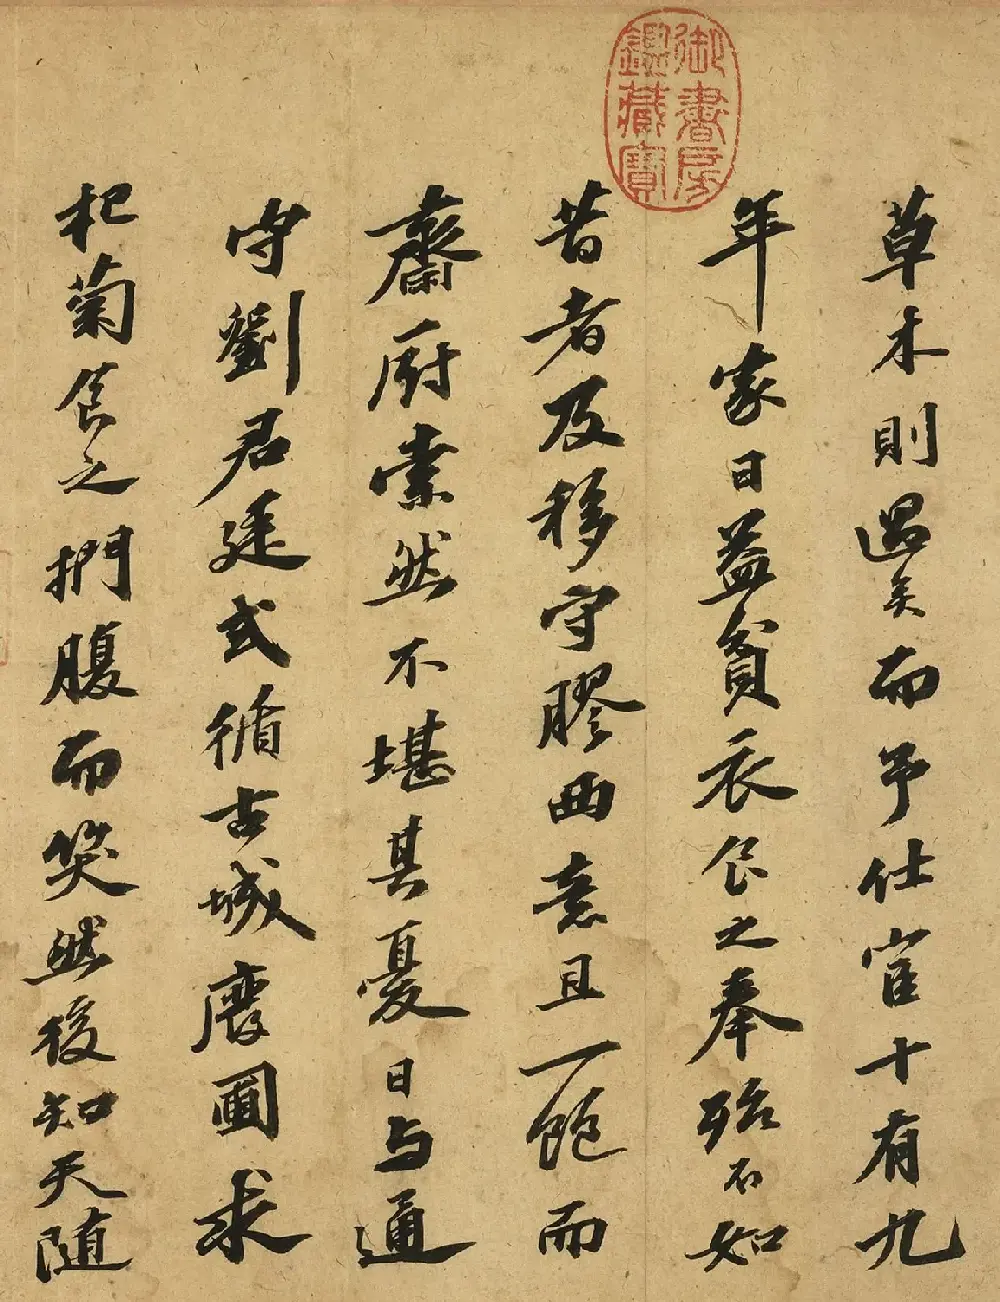 草木則過矣而予仕宦十有九
年家日益貧衣食之奉殆不如
昔者及移守膠西意且一飽而
齋廚索然不堪其憂日與通
守劉君廷式循古城廢圃求
杞菊食之捫腹而笑然後知天隨
御書房
鑑藏寶